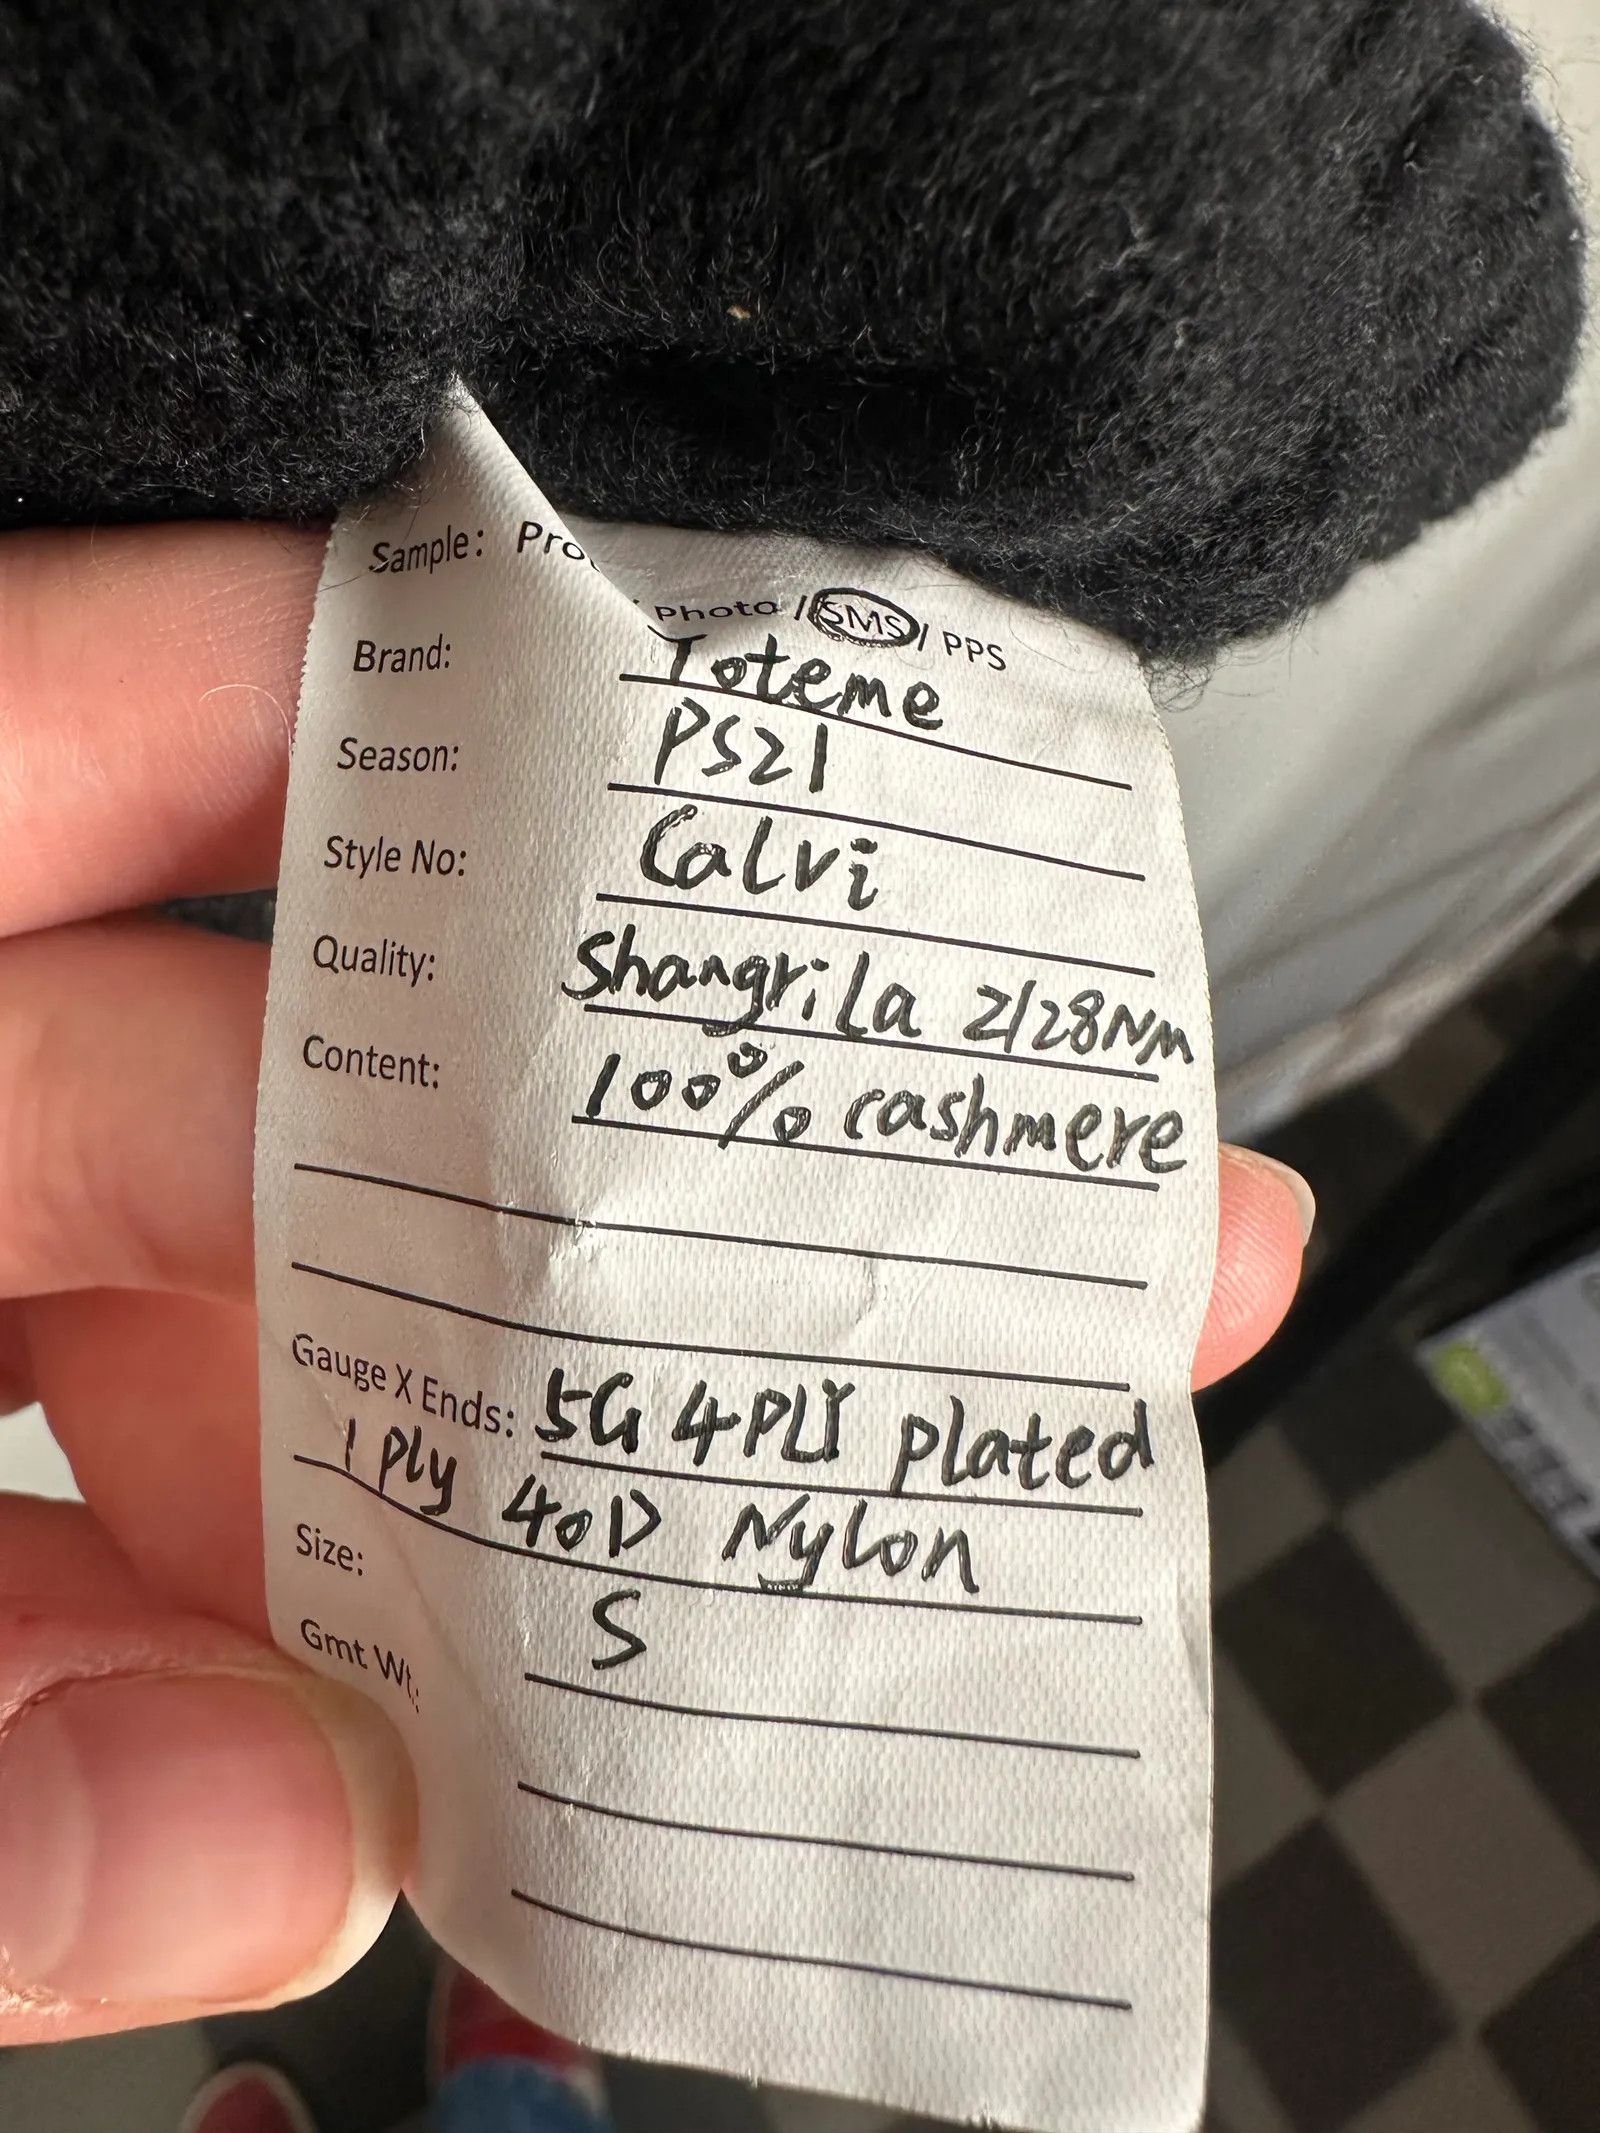 Sample: Pro
Photo / SMS / PPS
Brand: Toteme
Season: PS21
Style No: Calvi
Quality: Shangrila 2/28NM
Content: 100% cashmere
Gauge X Ends: 5G 4PLY plated
1 Ply 40D Nylon
Size: S
Gmt Wt: